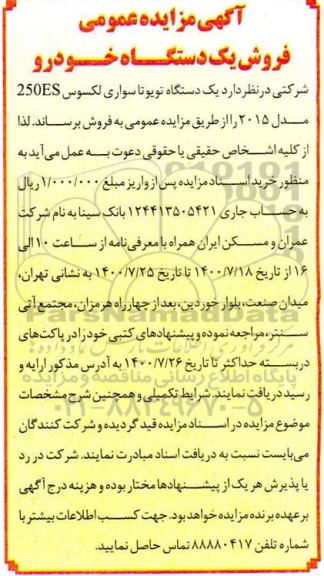 آگهی مزایده عمومی
فروش یک دستگاه خودرو
شرکتی در نظر دارد یک دستگاه تویوتا سواری لکسوس 250ES
مدل ۲۰۱۵ را از طریق مزایده عمومی به فروش برساند. لذا
از کلیه اشخاص حقیقی یا حقوقی دعوت به عمل می‌آید به
منظور خرید اسناد مزایده پس از واریز مبلغ ۱/۰۰۰/۰۰۰ ریال
به حساب جاری ۱۲۴۴۱۳۵۰۵۴۲۱ بانک سینا به نام شرکت
عمران و مسکن ایران همراه با معرفی‌نامه از ساعت ۱۰ الی
۱۶ از تاریخ ۱۴۰۰/۷/۱۸ تا تاریخ ۱۴۰۰/۷/۲۵ به نشانی تهران،
میدان صنعت، بلوار خوردین، بعد از چهارراه هرمزان، مجتمع آتی
سنتر، مراجعه نموده و پیشنهادهای کتبی خود را در پاکت‌های
دربسته حداکثر تا تاریخ ۱۴۰۰/۷/۲۶ به آدرس مذکور ارایه و
رسید دریافت نمایند. شرایط تکمیلی و همچنین شرح مشخصات
موضوع مزایده در اسناد مزایده قید گردیده و شرکت کنندگان
می‌بایست نسبت به دریافت اسناد مبادرت نمایند. شرکت در رد
یا پذیرش هر یک از پیشنهادها مختار بوده و هزینه درج آگهی
بر عهده برنده مزایده خواهد بود. جهت کسب اطلاعات بیشتر با
شماره تلفن ۸۸۸۸۰۴۱۷ تماس حاصل نمایید.
ParsNamadData
پایگاه اطلاع رسانی مناقصه و مزایده
۰۲۱-۸۸۳۴۹۶۷۰-۵